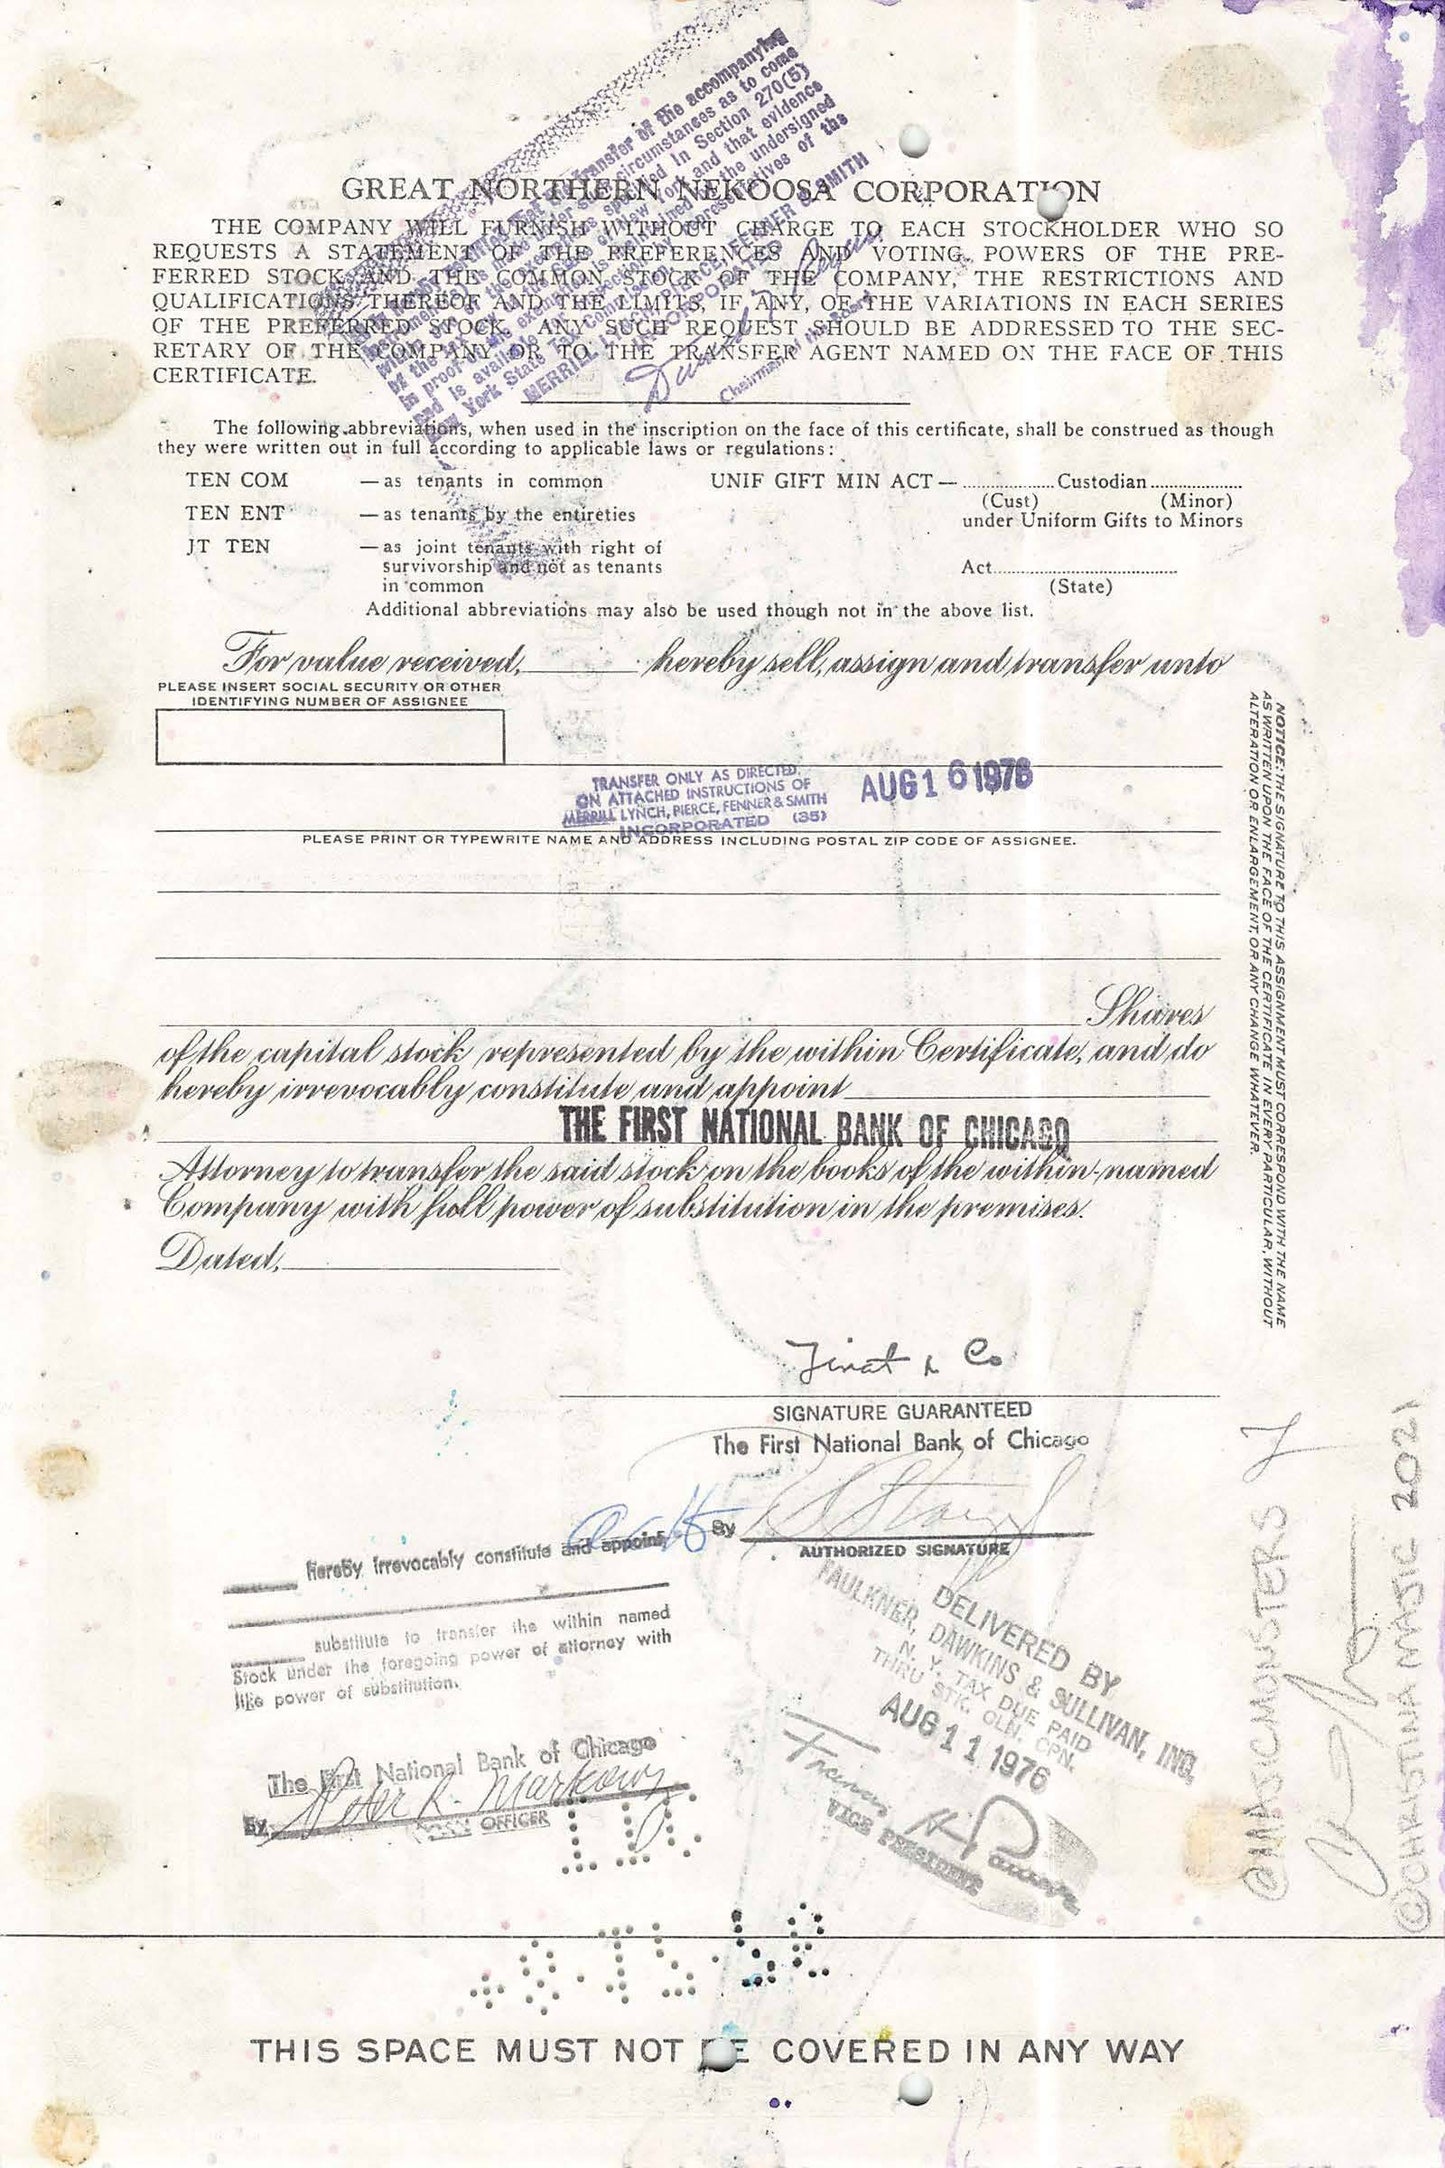 GREAT NORTHERN NEKOOSA CORPORATION
THE COMPANY WILL FURNISH WITHOUT CHARGE TO EACH STOCKHOLDER WHO SO
REQUESTS A STATEMENT OF THE PREFERENCES AND VOTING POWERS OF THE PRE-
FERRED STOCK AND THE COMMON STOCK OF THE COMPANY, THE RESTRICTIONS AND
QUALIFICATIONS THEREOF AND THE LIMITS, IF ANY, OF THE VARIATIONS IN EACH SERIES
OF THE PREFERRED STOCK. ANY SUCH REQUEST SHOULD BE ADDRESSED TO THE SEC-
RETARY OF THE COMPANY OR TO THE TRANSFER AGENT NAMED ON THE FACE OF THIS
CERTIFICATE.
transfer of the accompanying
circumstances as to come
specified in Section 270(5)
New York and that evidence
by the undersigned
representatives of the
New York State Tax Commission
MERRILL LYNCH, PIERCE, FENNER & SMITH
INCORPORATED
Chairman of the Board
The following abbreviations, when used in the inscription on the face of this certificate, shall be construed as though
they were written out in full according to applicable laws or regulations:
TEN COM — as tenants in common
TEN ENT — as tenants by the entireties
JT TEN — as joint tenants with right of
survivorship and not as tenants
in common
UNIF GIFT MIN ACT — .................. Custodian ..................
(Cust) (Minor)
under Uniform Gifts to Minors
Act....................................
(State)
Additional abbreviations may also be used though not in the above list.
For value received, hereby sell, assign and transfer unto
PLEASE INSERT SOCIAL SECURITY OR OTHER
IDENTIFYING NUMBER OF ASSIGNEE
TRANSFER ONLY AS DIRECTED
ON ATTACHED INSTRUCTIONS OF
MERRILL LYNCH, PIERCE, FENNER & SMITH
INCORPORATED (35)
AUG 16 1976
PLEASE PRINT OR TYPEWRITE NAME AND ADDRESS INCLUDING POSTAL ZIP CODE OF ASSIGNEE.
Shares
of the capital stock represented by the within Certificate, and do
hereby irrevocably constitute and appoint
THE FIRST NATIONAL BANK OF CHICAGO
Attorney to transfer the said stock on the books of the within-named
Company with full power of substitution in the premises.
Dated,
NOTICE: THE SIGNATURE TO THIS ASSIGNMENT MUST CORRESPOND WITH THE NAME
AS WRITTEN UPON THE FACE OF THE CERTIFICATE, IN EVERY PARTICULAR, WITHOUT
ALTERATION OR ENLARGEMENT, OR ANY CHANGE WHATEVER.
& Co
SIGNATURE GUARANTEED
The First National Bank of Chicago
By
AUTHORIZED SIGNATURE
hereby irrevocably constitute and appoint
substitute to transfer the within named
Stock under the foregoing power of attorney with
like power of substitution.
The First National Bank of Chicago
By Peter R. Markowy
OFFICER
DELIVERED BY
FAULKNER, DAWKINS & SULLIVAN, INC.
N. Y. TAX DUE PAID
THRU STK. CLN. CPN.
AUG 11 1976
VICE PRESIDENT
@MAJICMONSTERS
©CHRISTINA MAJIC 2021
THIS SPACE MUST NOT BE COVERED IN ANY WAY